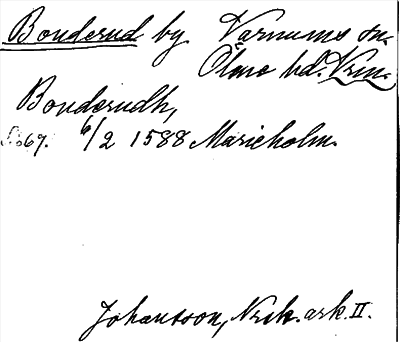 Bonderud by Varnums sn.
Ölme hd. Vrm.
Bonderudh,
S. 67. 6/2 1588 Marieholm.
Johansson, Nrsk. ark. II.